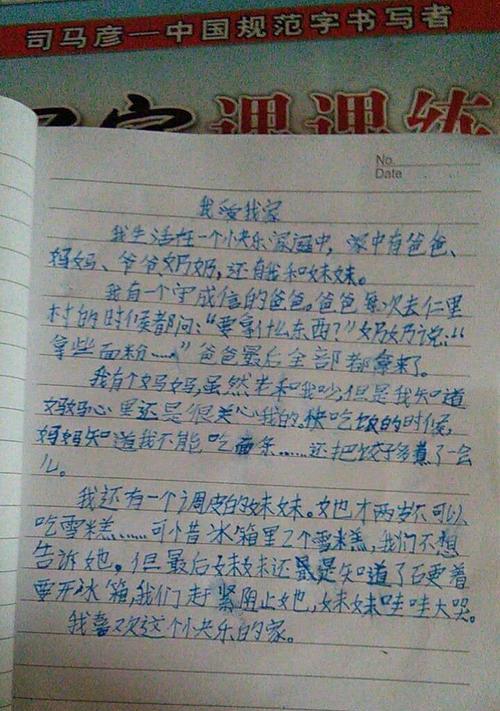 司马彦—中国规范字书写者
写字课课练
No.
Date
我爱我家
我生活在一个小快乐家庭中，家中有爸爸、
妈妈、爷爷奶奶，还有我和妹妹。
我有一个守成信的爸爸。爸爸每次去仁里
村的时候都问：“要拿什么东西？”奶奶说：“
拿些面粉……”爸爸最后全部都拿来了。
我有个妈妈，虽然老和我吵，但是我知道
妈妈心里还是很关心我的。快吃饭的时候，
妈妈知道我不能吃面条……还把饺子多煮了一会
儿。
我还有一个调皮的妹妹。她才两岁不可以
吃雪糕……可惜冰箱里2个雪糕，我们不想
告诉她。但最后妹妹还是知道了石更着
要开冰箱，我们赶紧阻止她，妹妹哇哇大哭。
我喜欢这个小快乐的家。